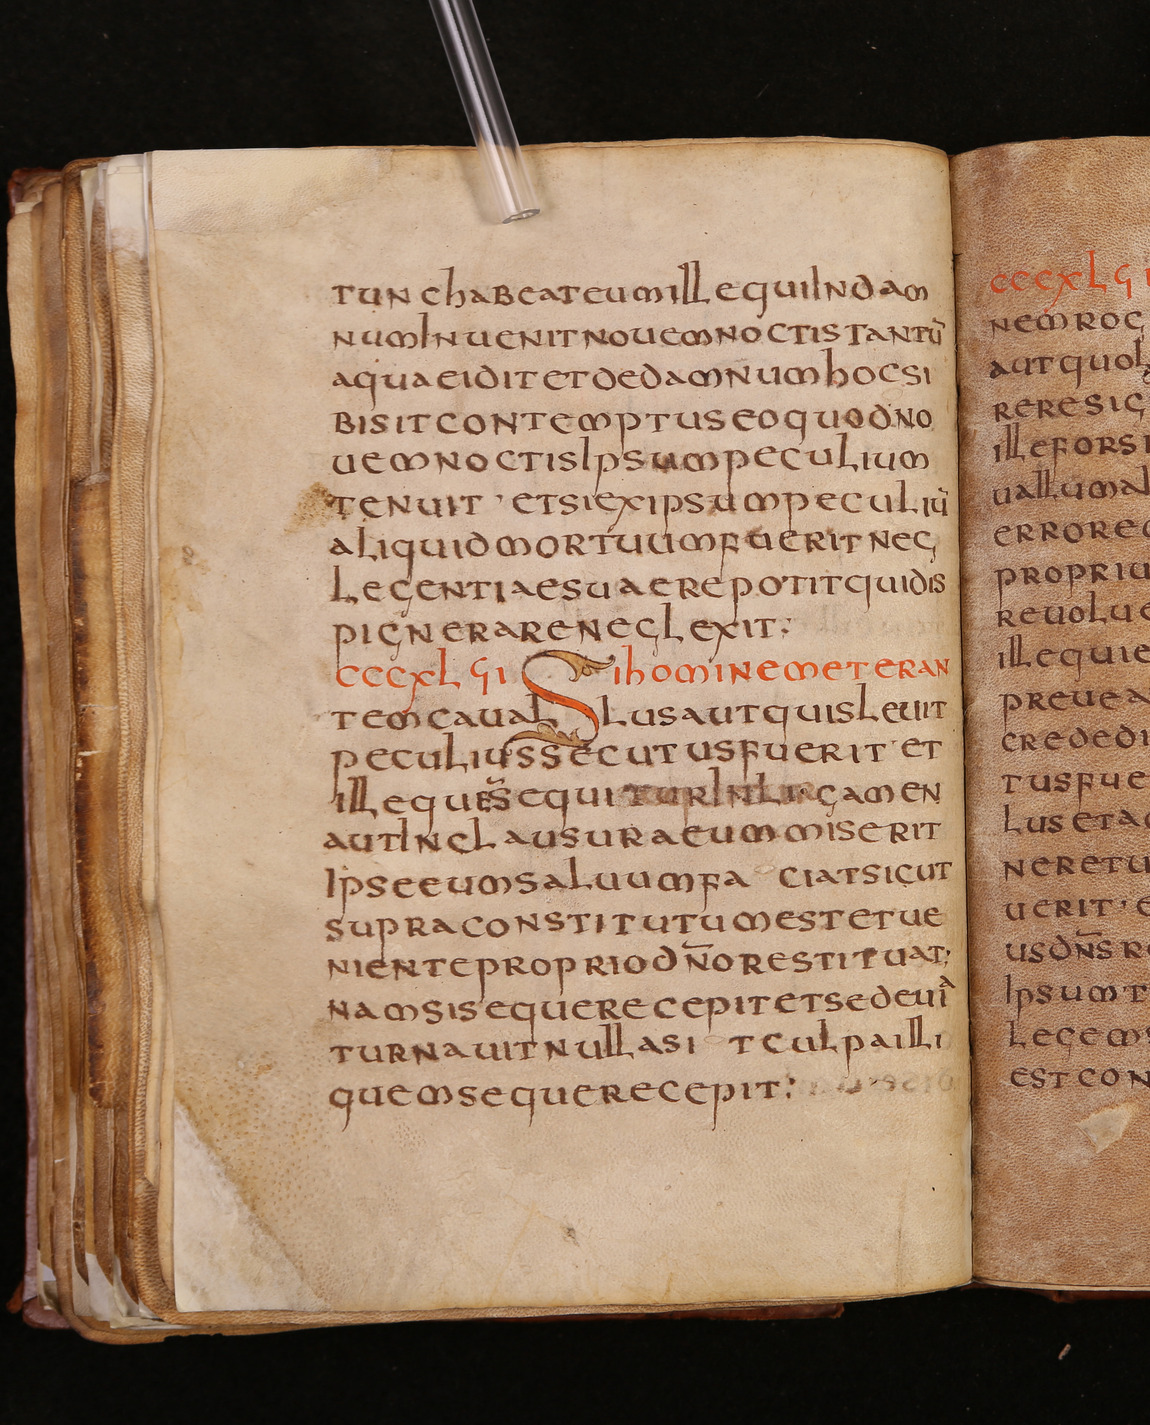 tunc habeat eum ille qui in dam
num inuenit nouem noctis tantū
aqua ei dit et de damnum hoc si
bi sit contemptus eo quod no
uem noctis ipsum peculium
tenuit · et si ex ipsum peculiū
aliquid mortuum fuerit neg
legentiae suae repotit qui dis
pignerare neglexit;
CCCXLGI Si hominem et eran
tem caual lus aut quislevit
peculius secutus fuerit et
ille que sequitur in lingamen
aut in clausura eum miserit
ipse eum saluum fa ciat sicut
supra constitutum est et ue
niente proprio dn̄o restituat;
nam si sequere cepit et se deuia
turnauit nulla si t culpa illi
quem sequere cepit;
CCCXLG
nem rog
aut quol
reresig
ille forsi
uallum al
errore
propriu
reuolue
ille quie
preuea
crededi
tus fue
lus et a
neretu
uerit · e
us dn̄s r
ipsum t
legem
est con